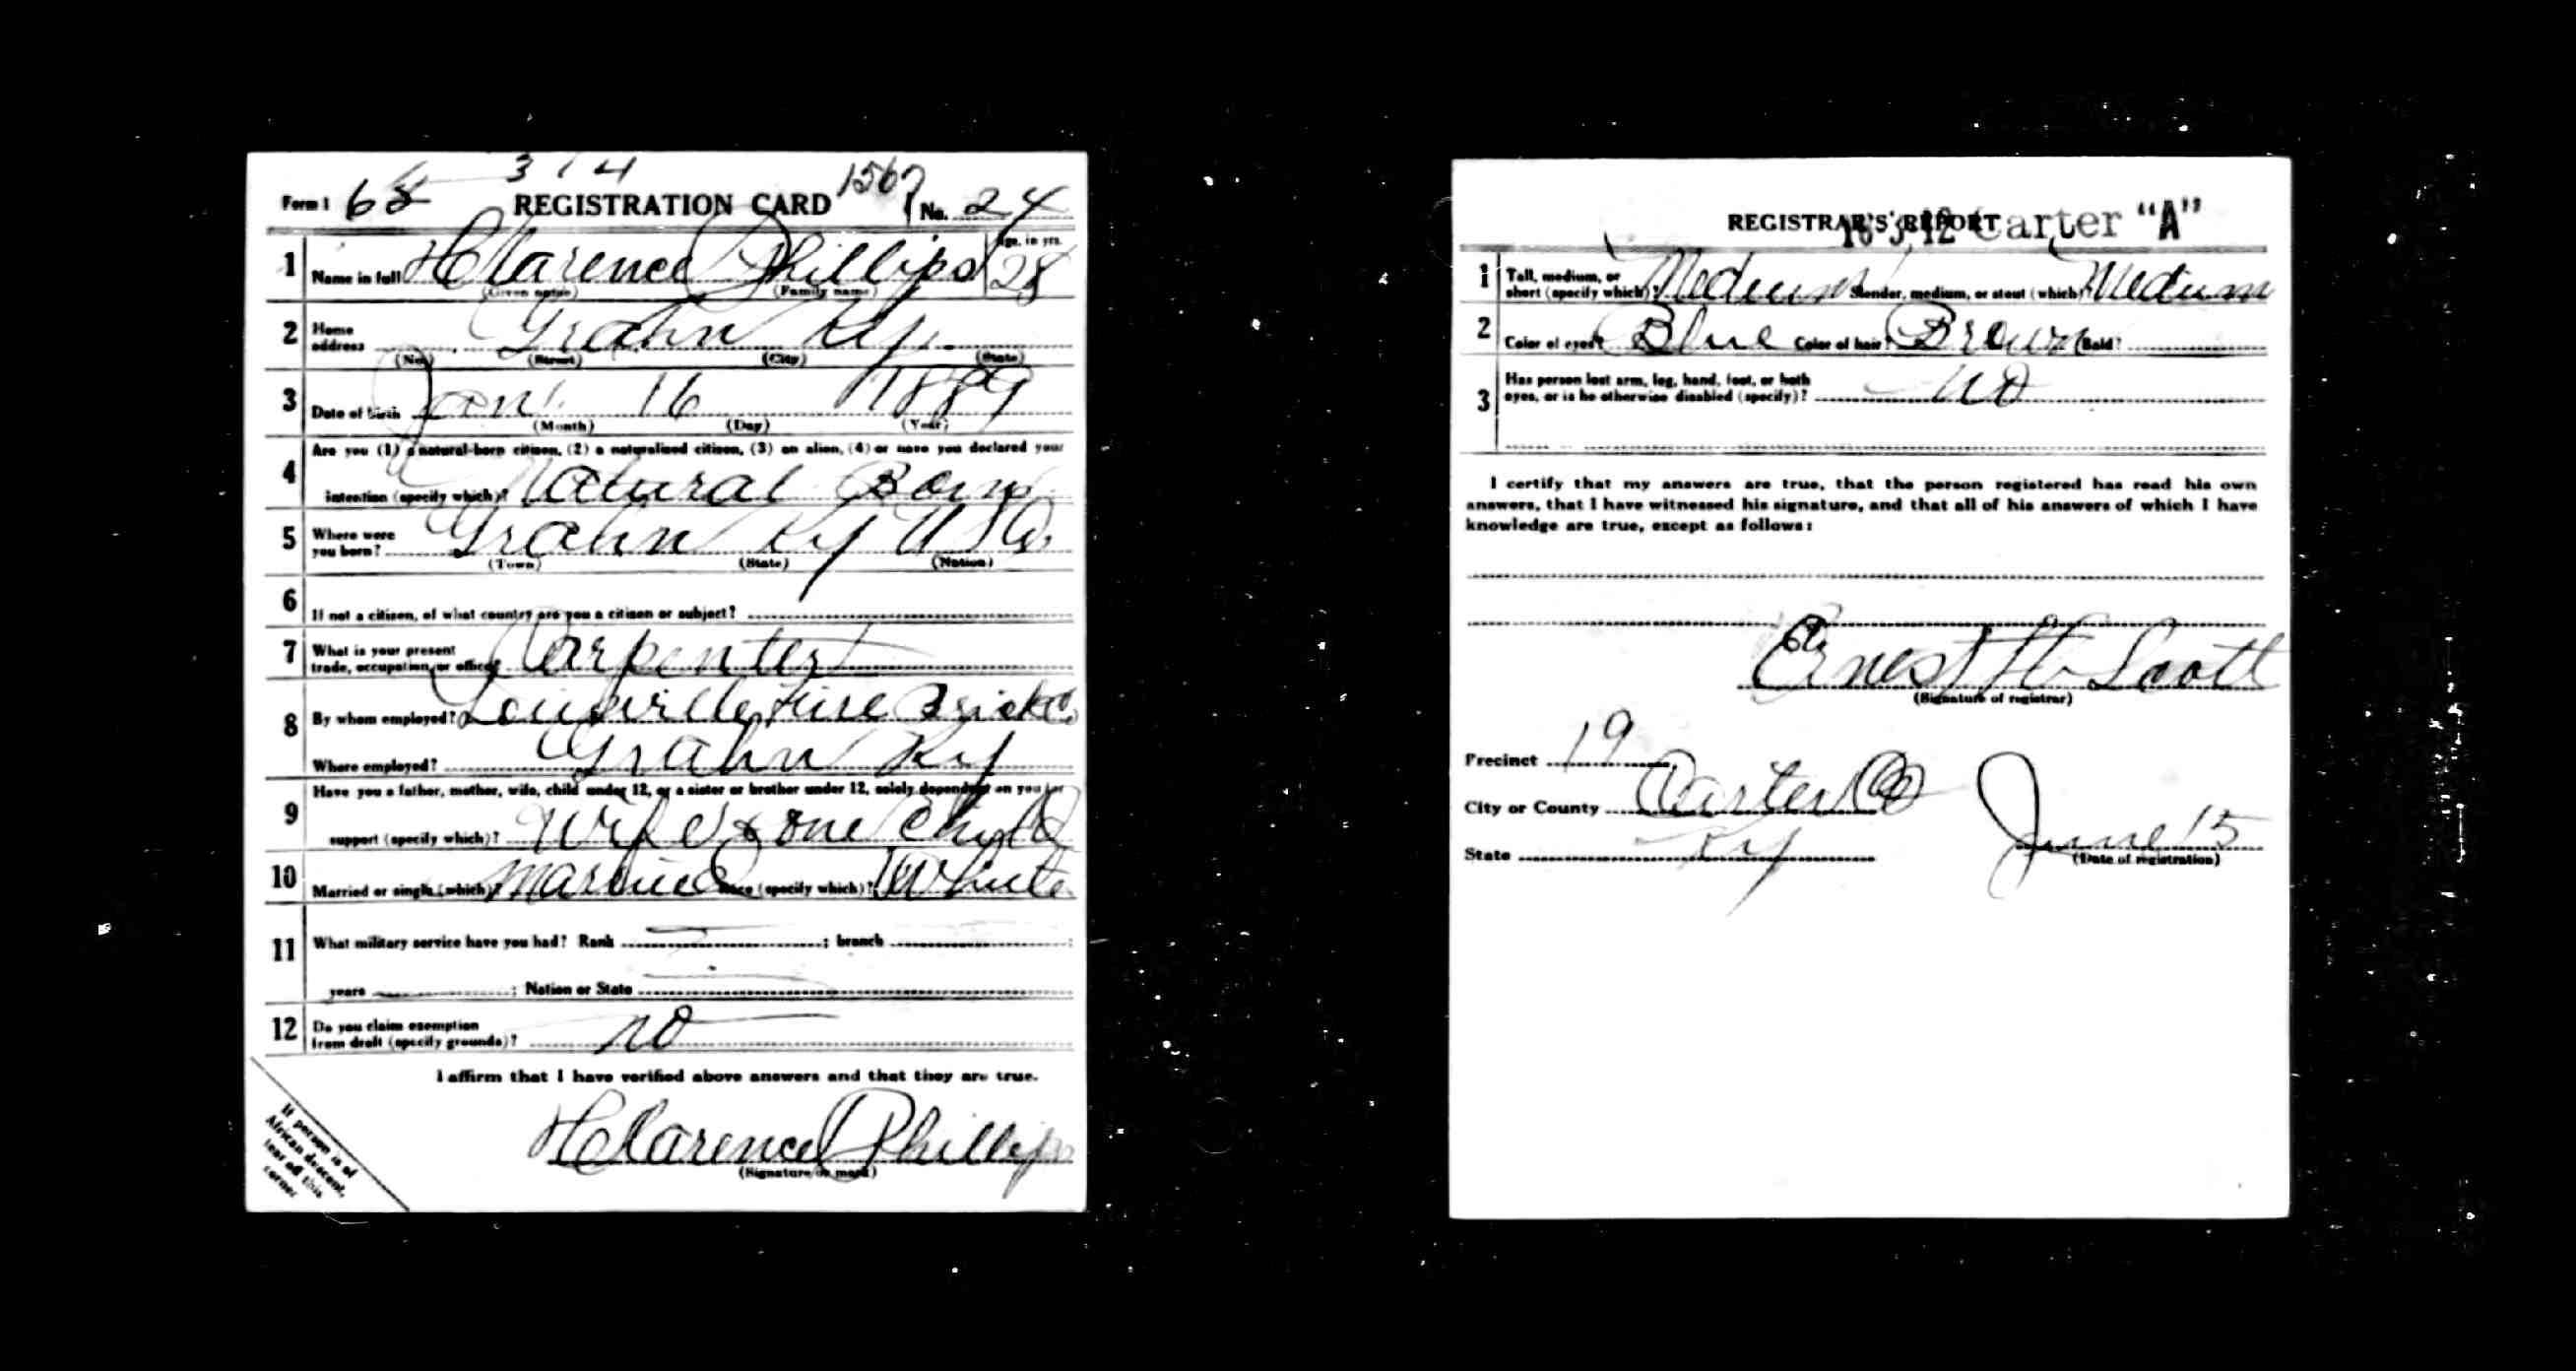 3 1 4
Form 1 68 REGISTRATION CARD 1567 No. 24
1 Name in full H Clarence Phillips Age, in yrs. 28
(Given name) (Family name)
2 Home address Grahn Ky.
(No.) (Street) (City) (State)
3 Date of birth Jan. 16 1889
(Month) (Day) (Year)
4 Are you (1) a natural-born citizen, (2) a naturalized citizen, (3) an alien, (4) or have you declared your
intention (specify which)? Natural Born
5 Where were you born? Grahn Ky USA.
(Town) (State) (Nation)
6 If not a citizen, of what country are you a citizen or subject?
7 What is your present trade, occupation, or office? Carpenter
8 By whom employed? Louisville Fire Brick Co.
Where employed? Grahn Ky
9 Have you a father, mother, wife, child under 12, or a sister or brother under 12, solely dependent on you for
support (specify which)? Wife & one Child
10 Married or single (which)? Married Race (specify which)? White
11 What military service have you had? Rank ; branch ;
years ; Nation or State
12 Do you claim exemption from draft (specify grounds)? no
I affirm that I have verified above answers and that they are true.
H Clarence Phillips
(Signature or mark)
If person is of
African descent,
tear off this
corner
REGISTRAR'S REPORT
16 3 12 Carter "A"
1 Tall, medium, or short (specify which)? Medium Slender, medium, or stout (which)? Medium
2 Color of eyes? Blue Color of hair? Brown Bald?
3 Has person lost arm, leg, hand, foot, or both eyes, or is he otherwise disabled (specify)? no
I certify that my answers are true, that the person registered has read his own
answers, that I have witnessed his signature, and that all of his answers of which I have
knowledge are true, except as follows:
Ernest H Scott
(Signature of registrar)
Precinct 19
City or County Carter Co
State Ky
June 15
(Date of registration)